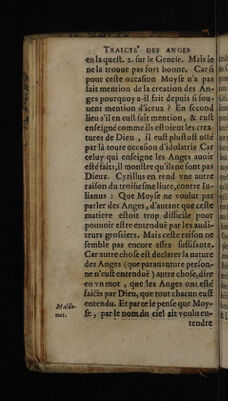 TRAICTE DES ANGES
en la quest. 2. sur le Genese. Mais ie
ne la trouue pas fort bonne. Car si
pour ceste occasion Moyse n'a pas
fait mention de la creation des An-
ges pourquoy a-il fait depuis si sou-
uent mention d'iceux? En second
lieu s'il en eust fait mention, & eust
enseigné comme ils estoient les crea-
tures de Dieu, il eust plustost osté
par là toute occasion d'idolatrie Car
celuy qui enseigne les Anges auoir
esté faits, il monstre qu'ils ne sont pas
Dieux. Cyrillus en rend vne autre
raison du troisiesme liure, contre Iu-
lianus: Que Moyse ne voulut pas
parler des Anges, d'autant que ceste
matiere estoit trop difficile pour
pouuoir estre entenduë par les audi-
teurs grossiers. Mais ceste raison ne
semble pas encore assez suffisante.
Car autre chose est declarer la nature
des Anges (que parauanture person-
ne n'eust entenduë) autre chose, dire
en vn mot, que les Anges ont esté
faicts par Dieu, que tout chacun eust
entendu. Et parce ie pense que Moy-
se, par le nom du ciel ait voulu en-
tendre
Maldo-
nat.